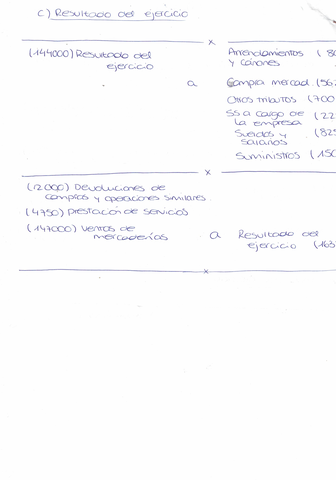 c) Resultado del ejercicio
x
(144000) Resultado del
ejercicio
Arrendamientos (80
y cánones
a Compra mercad. (56
Otros tributos (700
SS a cargo de (22
la empresa
Sueldos y (825
salarios
Suministros (150
x
(2000) Devoluciones de
compras y operaciones similares
(4750) prestación de servicios
(147000) Ventas de
mercaderías
a Resultado del
ejercicio (163
x